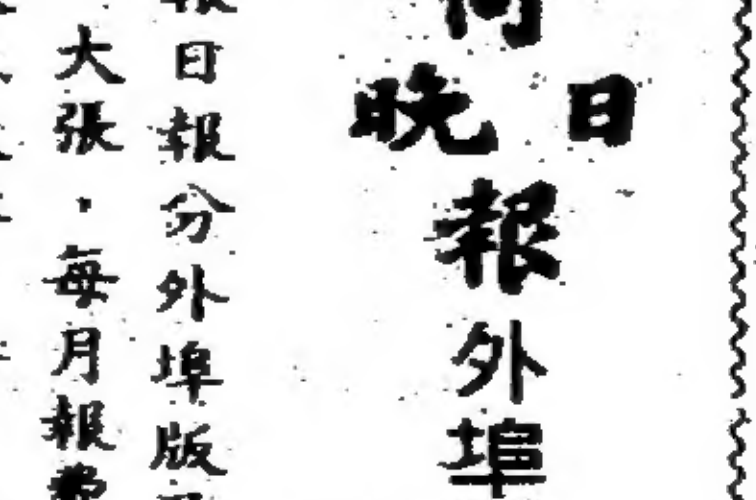 日晚報外埠
日報分外埠版
大張・每月報費